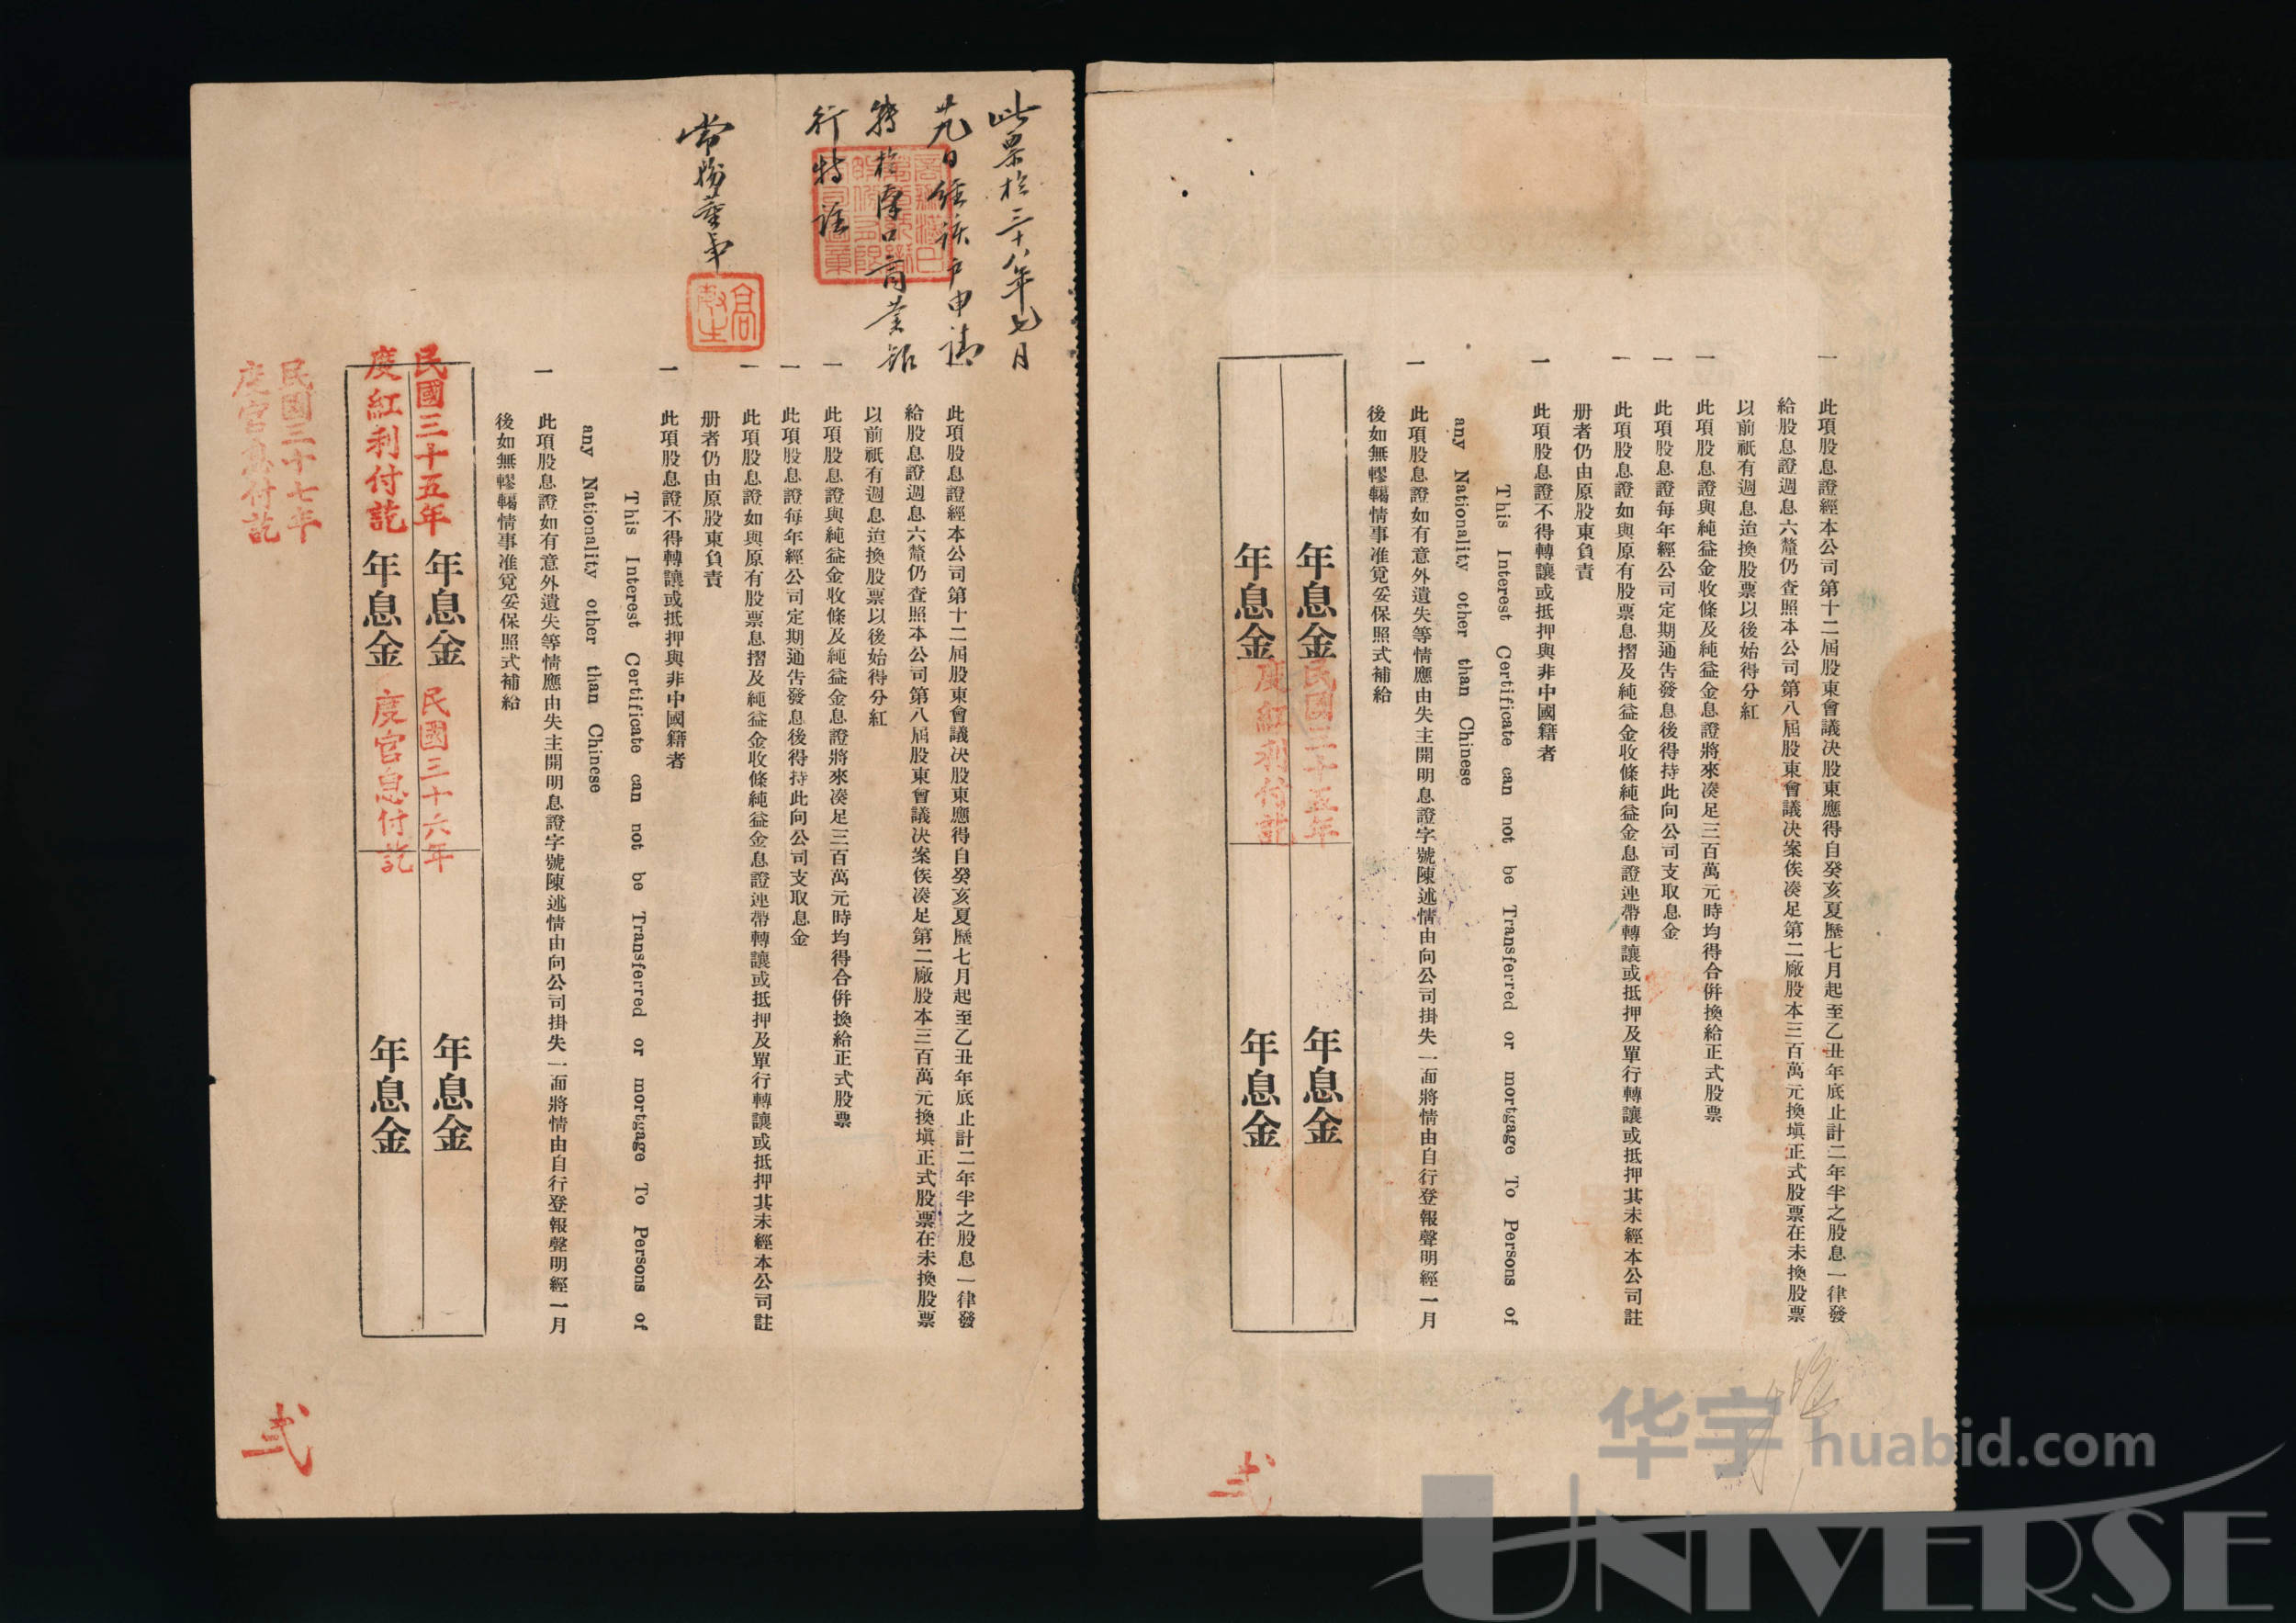 此票於三十八年七月
廿九日經該戶申請
轉於漢口商業銀
行特註
常務董事
一 此項股息證經本公司第十二屆股東會議決股東應得自癸亥夏歷七月起至乙丑年底止計二年半之股息一律發
給股息證週息六釐仍查照本公司第八屆股東會議決案俟湊足第二廠股本三百萬元換塡正式股票在未換股票
以前祇有週息迨換股票以後始得分紅
一 此項股息證與純益金收條及純益金息證將來湊足三百萬元時均得合併換給正式股票
一 此項股息證每年經公司定期通告發息後得持此向公司支取息金
一 此項股息證如與原有股票息摺及純益金收條純益金息證連帶轉讓或抵押及單行轉讓或抵押其未經本公司註
册者仍由原股東負責
一 此項股息證不得轉讓或抵押與非中國籍者
This Interest Certificate can not be Transferred or mortgage To Persons of
any Nationality other than Chinese
一 此項股息證如有意外遺失等情應由失主開明息證字號陳述情由向公司掛失一面將情由自行登報聲明經一月
後如無轇轕情事准覓妥保照式補給
年息金
年息金
年息金
年息金
民國三十五年
度紅利付訖
民國三十六年
度官息付訖
民國三十七年
度官息付訖
弍
一 此項股息證經本公司第十二屆股東會議決股東應得自癸亥夏歷七月起至乙丑年底止計二年半之股息一律發
給股息證週息六釐仍查照本公司第八屆股東會議決案俟湊足第二廠股本三百萬元換塡正式股票在未換股票
以前祇有週息迨換股票以後始得分紅
一 此項股息證與純益金收條及純益金息證將來湊足三百萬元時均得合併換給正式股票
一 此項股息證每年經公司定期通告發息後得持此向公司支取息金
一 此項股息證如與原有股票息摺及純益金收條純益金息證連帶轉讓或抵押及單行轉讓或抵押其未經本公司註
册者仍由原股東負責
一 此項股息證不得轉讓或抵押與非中國籍者
This Interest Certificate can not be Transferred or mortgage To Persons of
any Nationality other than Chinese
一 此項股息證如有意外遺失等情應由失主開明息證字號陳述情由向公司掛失一面將情由自行登報聲明經一月
後如無轇轕情事准覓妥保照式補給
年息金
年息金
年息金
年息金
民國三十五年
度紅利付訖
弍
华宇 huabid.com
UNIVERSE